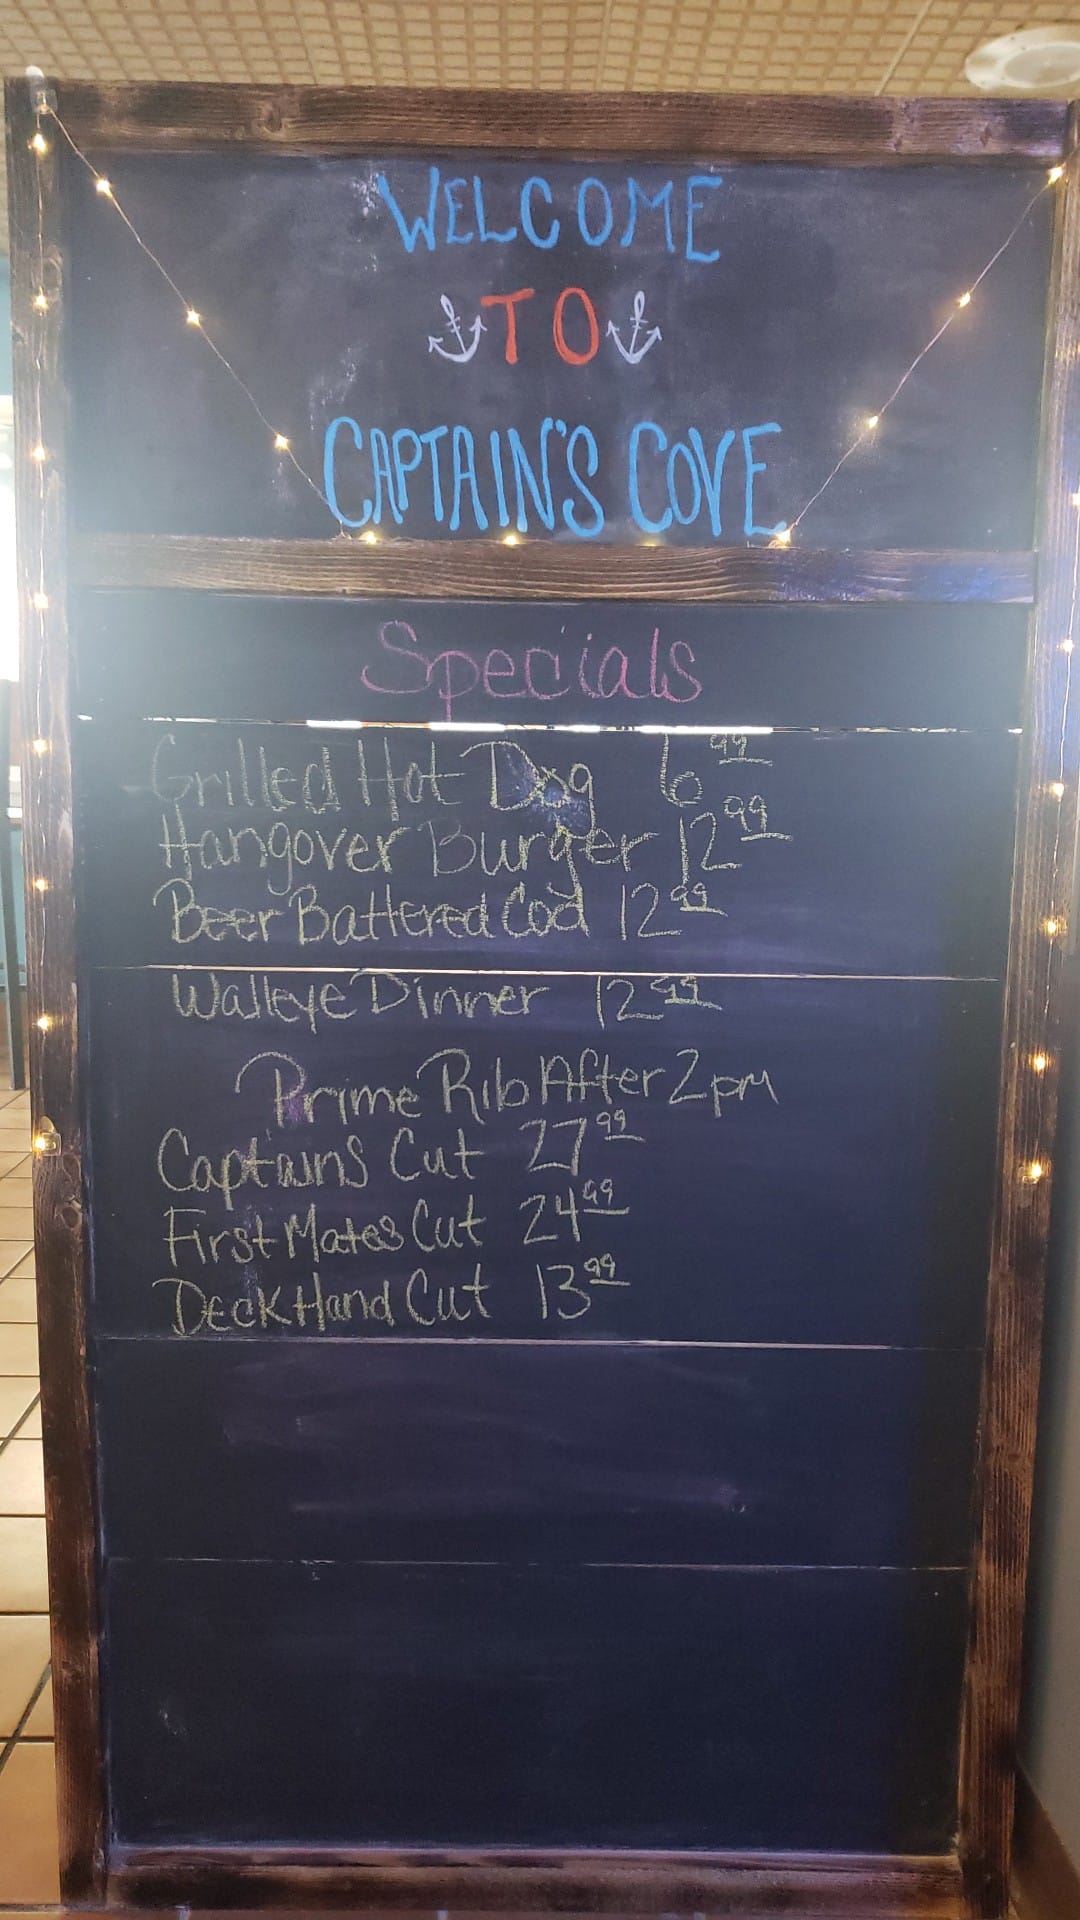 WELCOME
TO
CAPTAIN'S COVE
Specials
Grilled Hot Dog 6 99
Hangover Burger 12 99
Beer Battered Cod 12 99
Walleye Dinner 12 99
Prime Rib After 2pm
Captains Cut 27 99
First Mates Cut 24 99
Deck Hand Cut 13 99